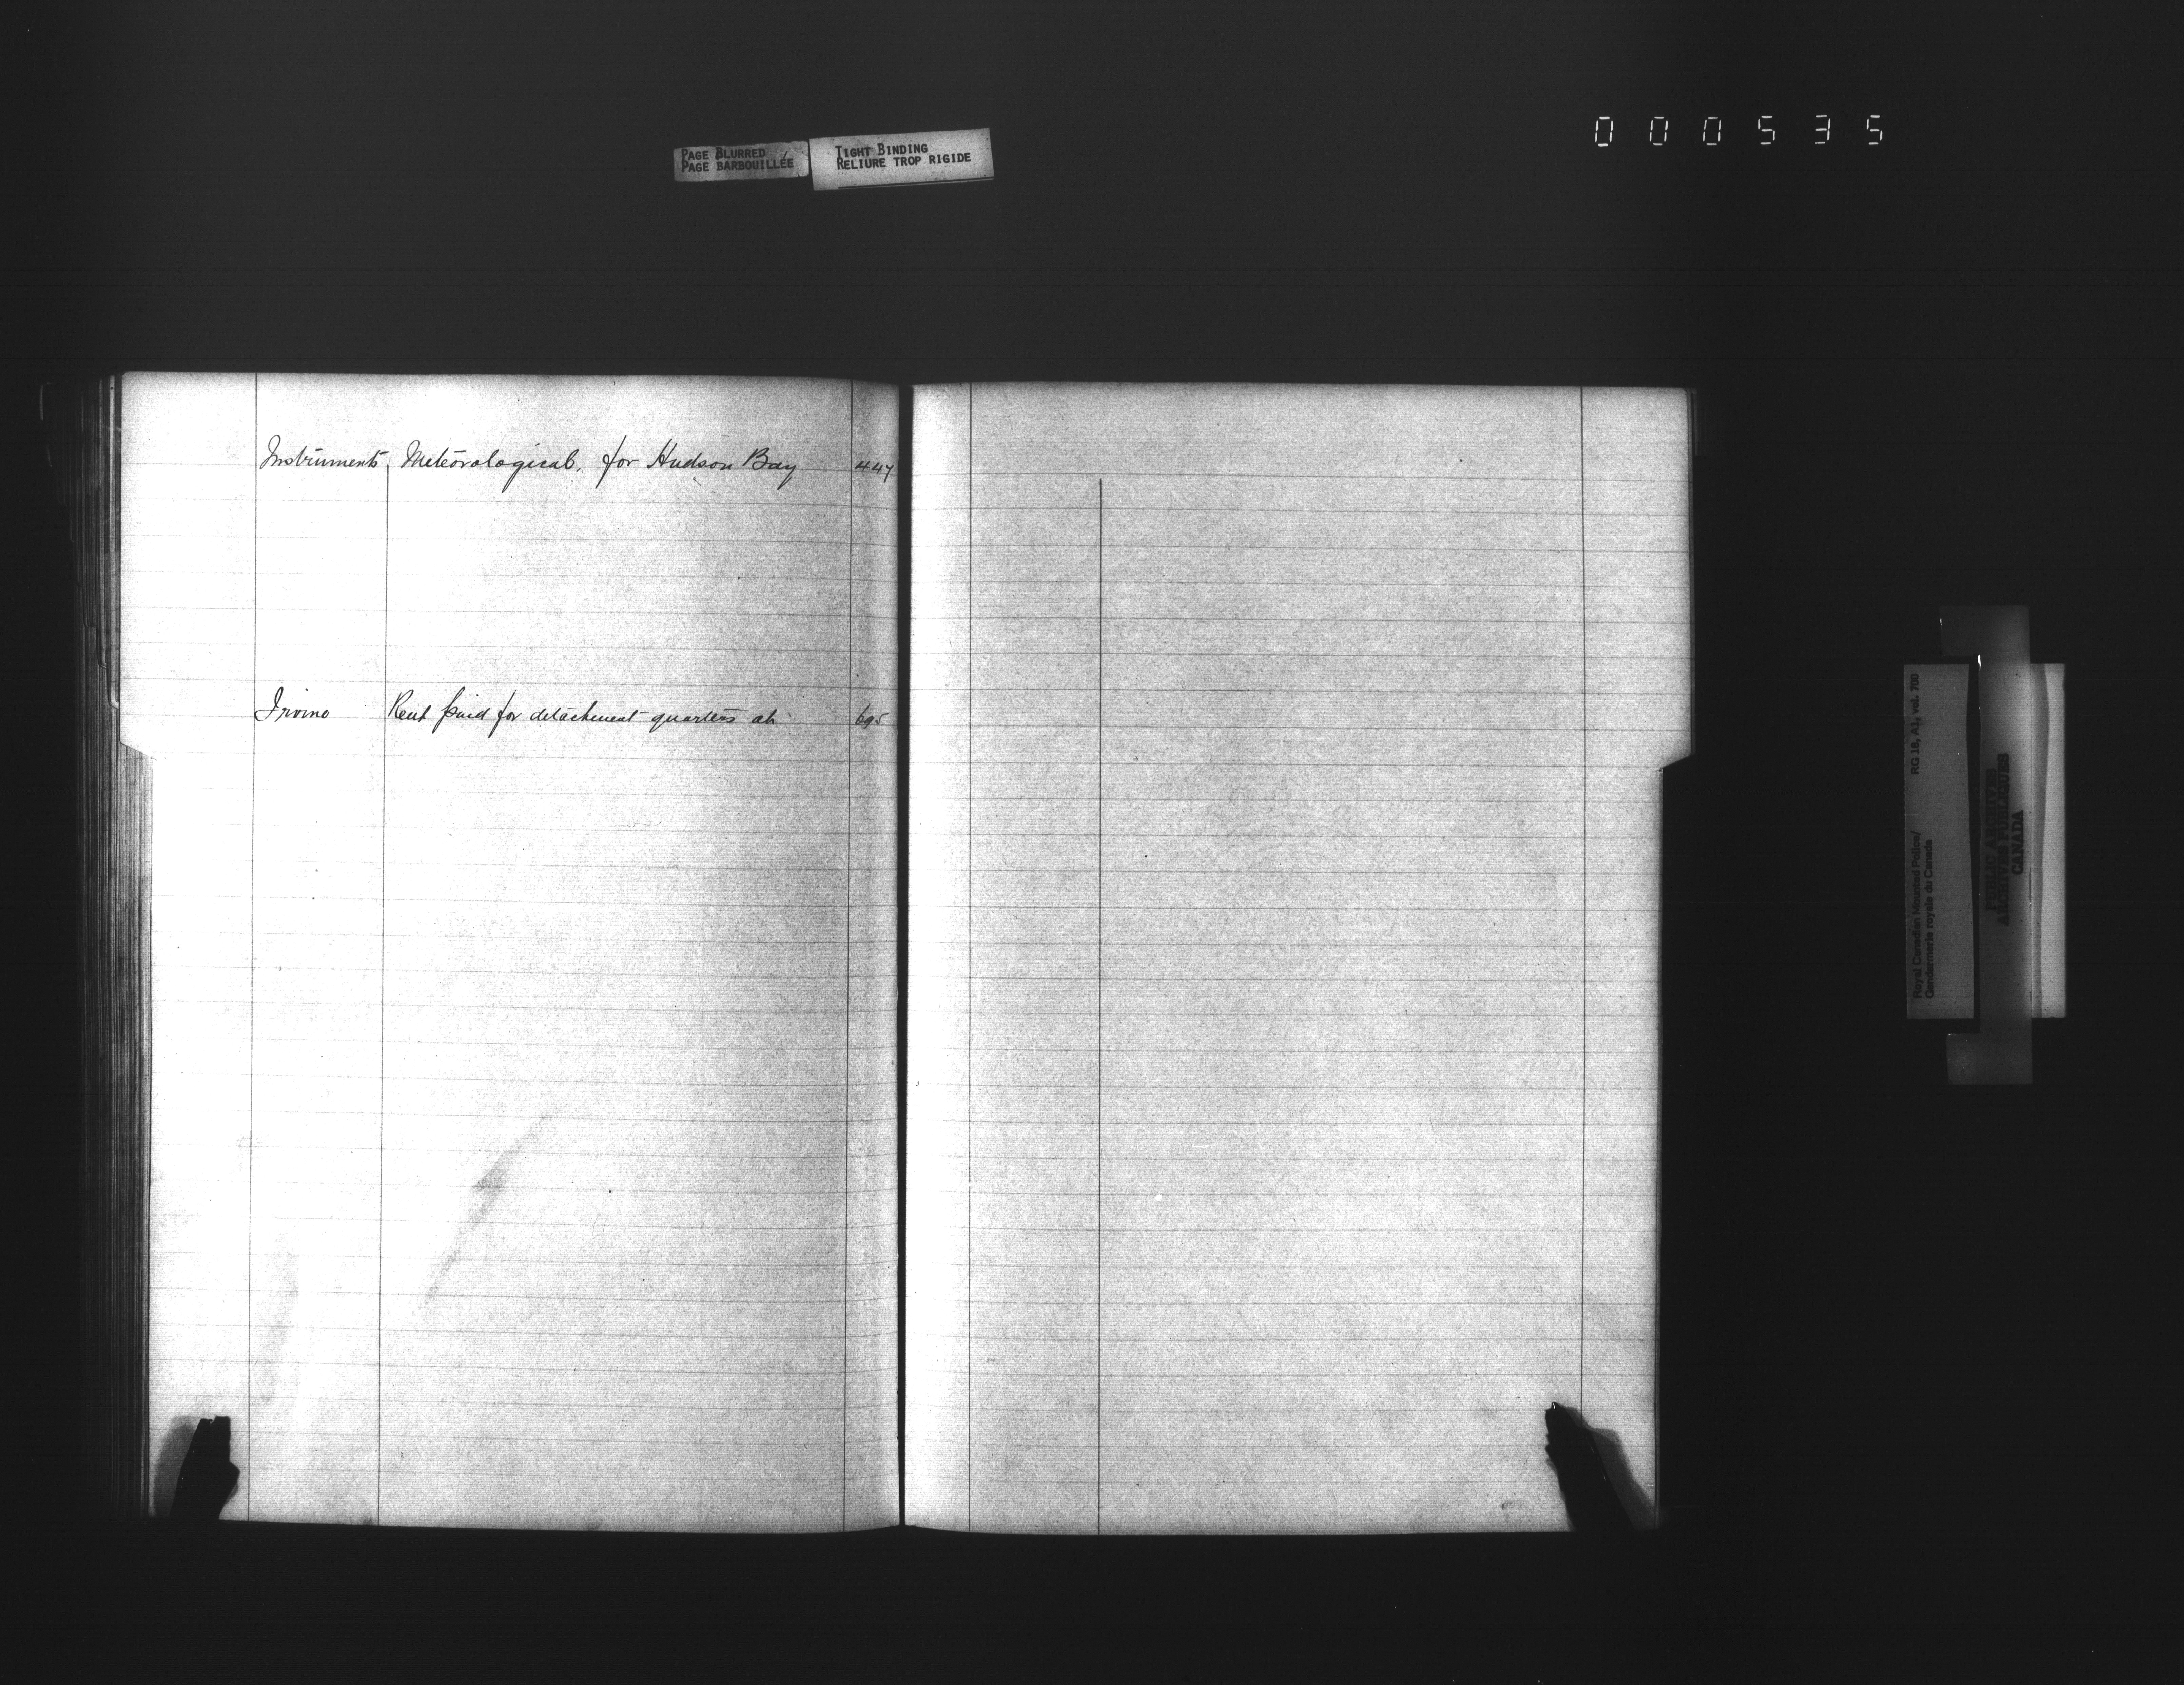 000535
PAGE BLURRED
PAGE BARBOUILLÉE
TIGHT BINDING
RELIURE TROP RIGIDE
Instruments, Meteorological, for Hudson Bay 447
Irvine Rent paid for detachment quarters at 695
Royal Canadian Mounted Police/ RG 18, A1, vol. 700
Gendarmerie royale du Canada
PUBLIC ARCHIVES
ARCHIVES PUBLIQUES
CANADA